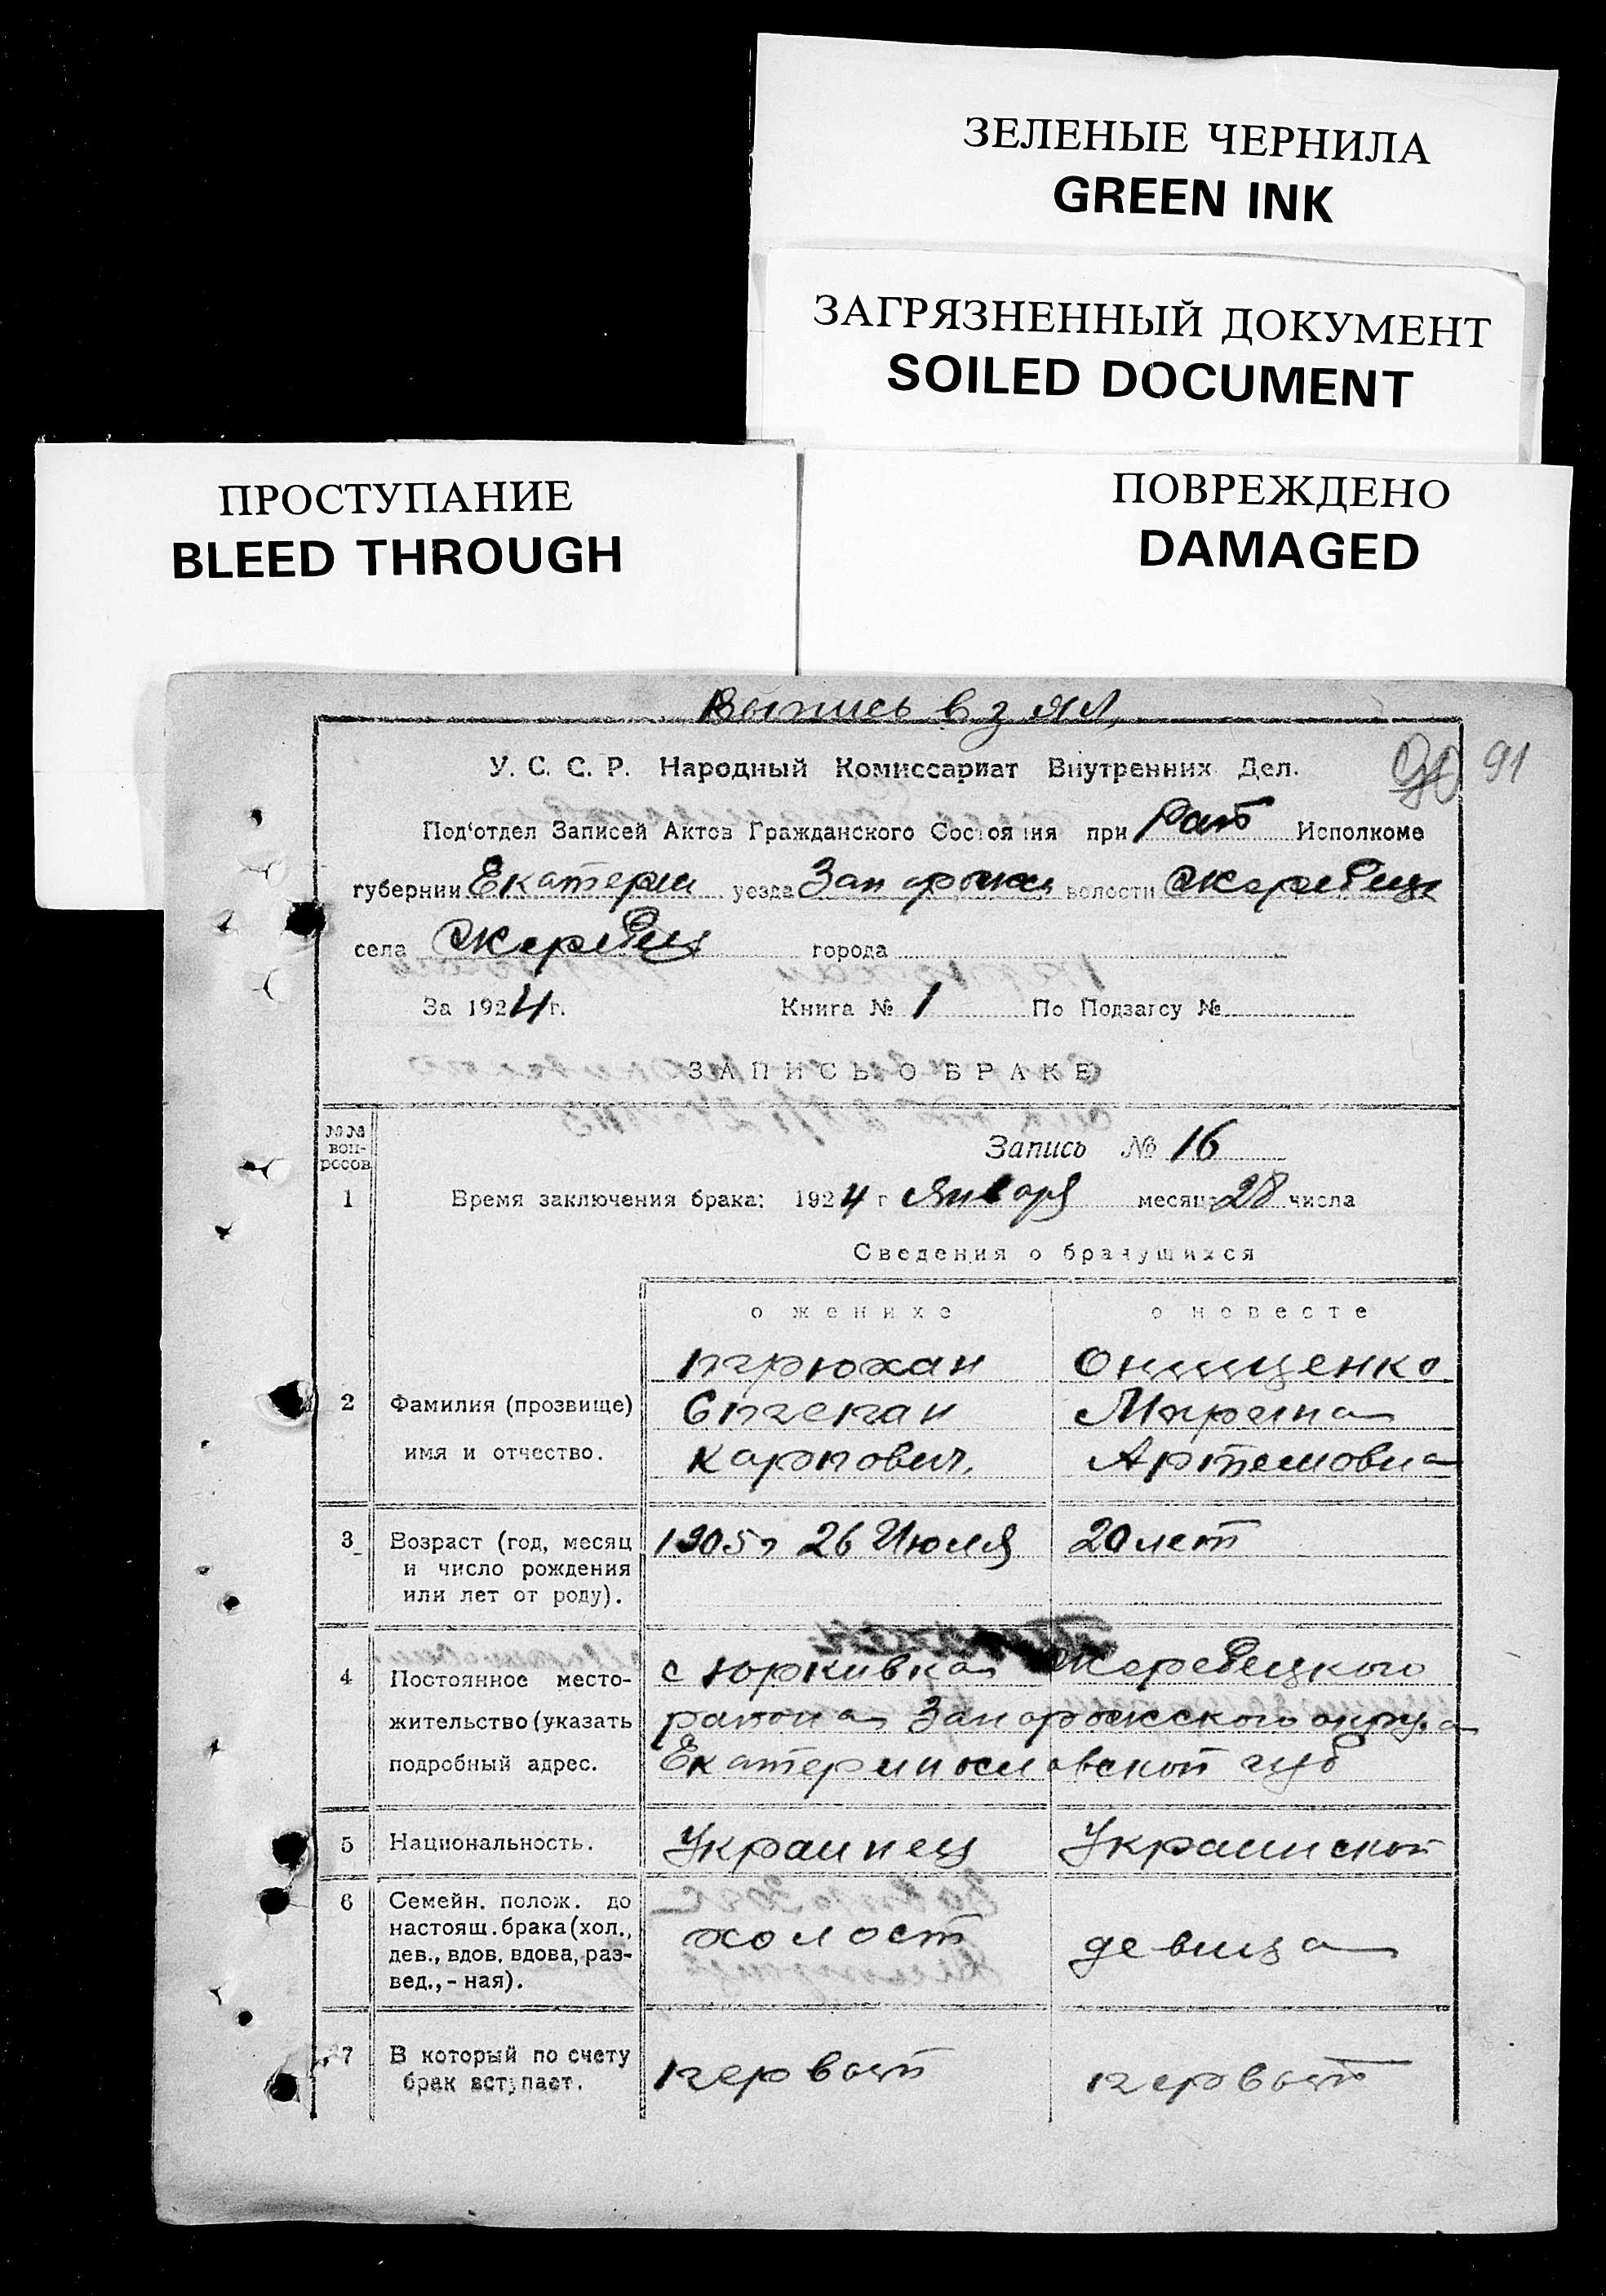 ЗЕЛЕНЫЕ ЧЕРНИЛА
GREEN INK
ЗАГРЯЗНЕННЫЙ ДОКУМЕНТ
SOILED DOCUMENT
ПРОСТУПАНИЕ
BLEED THROUGH
ПОВРЕЖДЕНО
DAMAGED
Выпись взял
91
У. С. С. Р. Народный Комиссариат Внутренних Дел.
Под'отдел Записей Актов Гражданского Состояния при Рай Исполкоме
губернии Екатерин уезда Запорожск волости Жеребецк
села Жеребец города
За 1924 г. Книга № 1 По Подзагсу №
ЗАПИСЬ О БРАКЕ
№№ воп-
росов
Запись № 16
1 Время заключения брака: 1924 г Января месяца 28 числа
Сведения о брачущихся
о женихе о невесте
Онищенко
2 Фамилия (прозвище) Степан
имя и отчество. Карпович, Артемовна
3 Возраст (год, месяц 1905 г 26 Июля 20 лет
и число рождения
или лет от роду).
4 Постоянное место- с Юркивка Жеребецкого
жительство (указать района Запорожского округа
подробный адрес. Екатеринославской губ
5 Национальность. Украинец Украинской
6 Семейн. полож. до
настоящ. брака (хол., холост девица
дев., вдов. вдова, раз-
вед., - ная).
7 В который по счету первый первый
брак вступает.